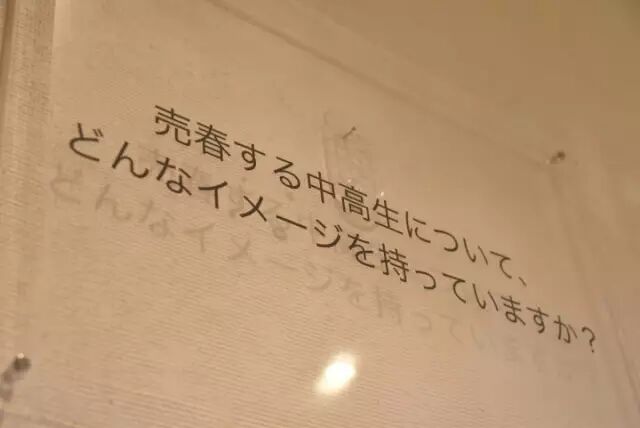 売春する中高生について、
どんなイメージを持っていますか?